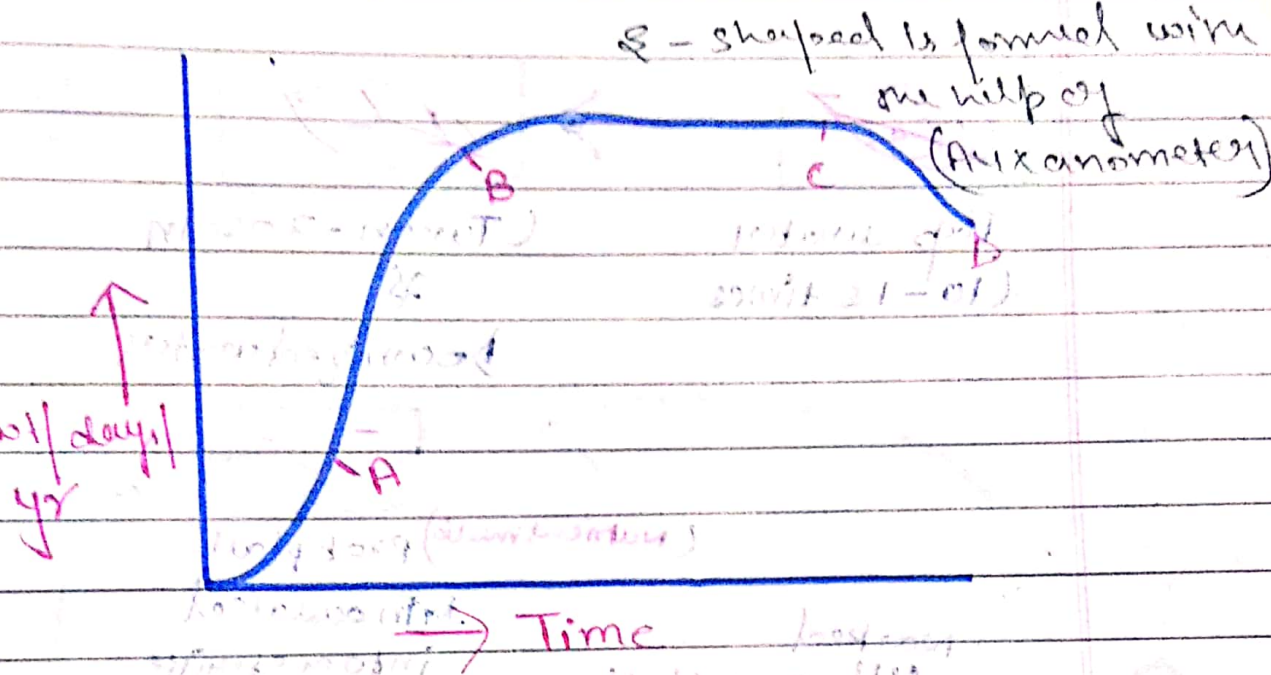 S - shaped is formed with
the help of
(Auxanometer)
B
C
D
days/
yr
A
Time